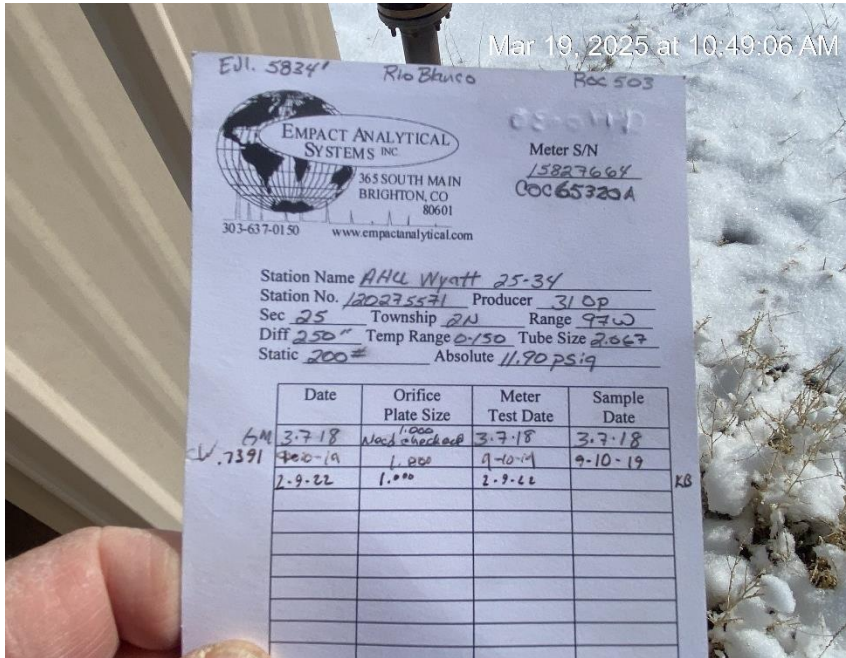 Mar 19, 2025 at 10:49:06 AM
Ejl. 5834' Rio Blanco Roc 503
EMPACT ANALYTICAL
SYSTEMS INC
365 SOUTH MAIN
BRIGHTON, CO
80601
303-637-0150 www.empactanalytical.com
Meter S/N
15827664
COC65320A
Station Name AHU Wyatt 25-34
Station No. 120275571 Producer 31 Op
Sec 25 Township 2N Range 97W
Diff 250" Temp Range 0-150 Tube Size 2.067
Static 200# Absolute 11.90 psig
Date Orifice Plate Size Meter Test Date Sample Date
GM 3.7.18 1.000 checked 3.7.18 3.7.18
CW .7391 1.000 9-10-19 9-10-19
2-9-22 1.000 2-9-22 KB